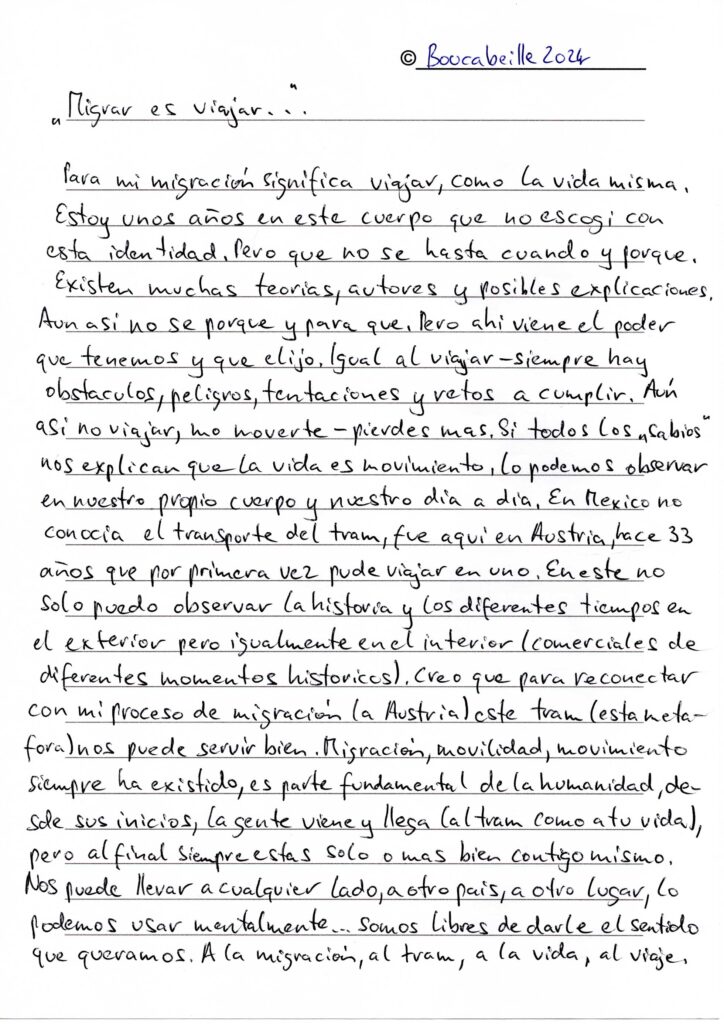 © Boucabeille 2024
„Migrar es viajar..."
Para mi migración significa viajar, como la vida misma.
Estoy unos años en este cuerpo que no escogi con
esta identidad. Pero que no se hasta cuando y porque.
Existen muchas teorias, autores y posibles explicaciones.
Aun asi no se porque y para que. Pero ahi viene el poder
que tenemos y que elijo. Igual al viajar – siempre hay
obstaculos, peligros, tentaciones y retos a cumplir. Aún
asi no viajar, no moverte – pierdes mas. Si todos los „sabios"
nos explican que la vida es movimiento, lo podemos observar
en nuestro propio cuerpo y nuestro dia a dia. En Mexico no
conocia el transporte del tram, fue aqui en Austria, hace 33
años que por primera vez pude viajar en uno. En este no
solo puedo observar la historia y los diferentes tiempos en
el exterior pero igualmente en el interior (comerciales de
diferentes momentos historicos). Creo que para reconectar
con mi proceso de migración (a Austria) este tram (esta meta-
fora) nos puede servir bien. Migración, movilidad, movimiento
siempre ha existido, es parte fundamental de la humanidad, de-
sde sus inicios, la gente viene y llega (al tram como a tu vida),
pero al final siempre estas solo o mas bien contigo mismo.
Nos puede llevar a cualquier lado, a otro pais, a otro lugar, lo
podemos usar mentalmente... somos libres de darle el sentido
que queramos. A la migración, al tram, a la vida, al viaje.